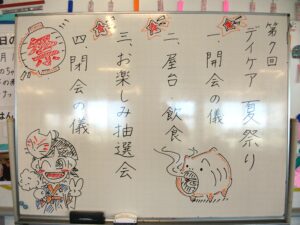 第7回
デイケア夏祭り
一、開会の儀
二、屋台・飲食
三、お楽しみ抽選会
四、閉会の儀